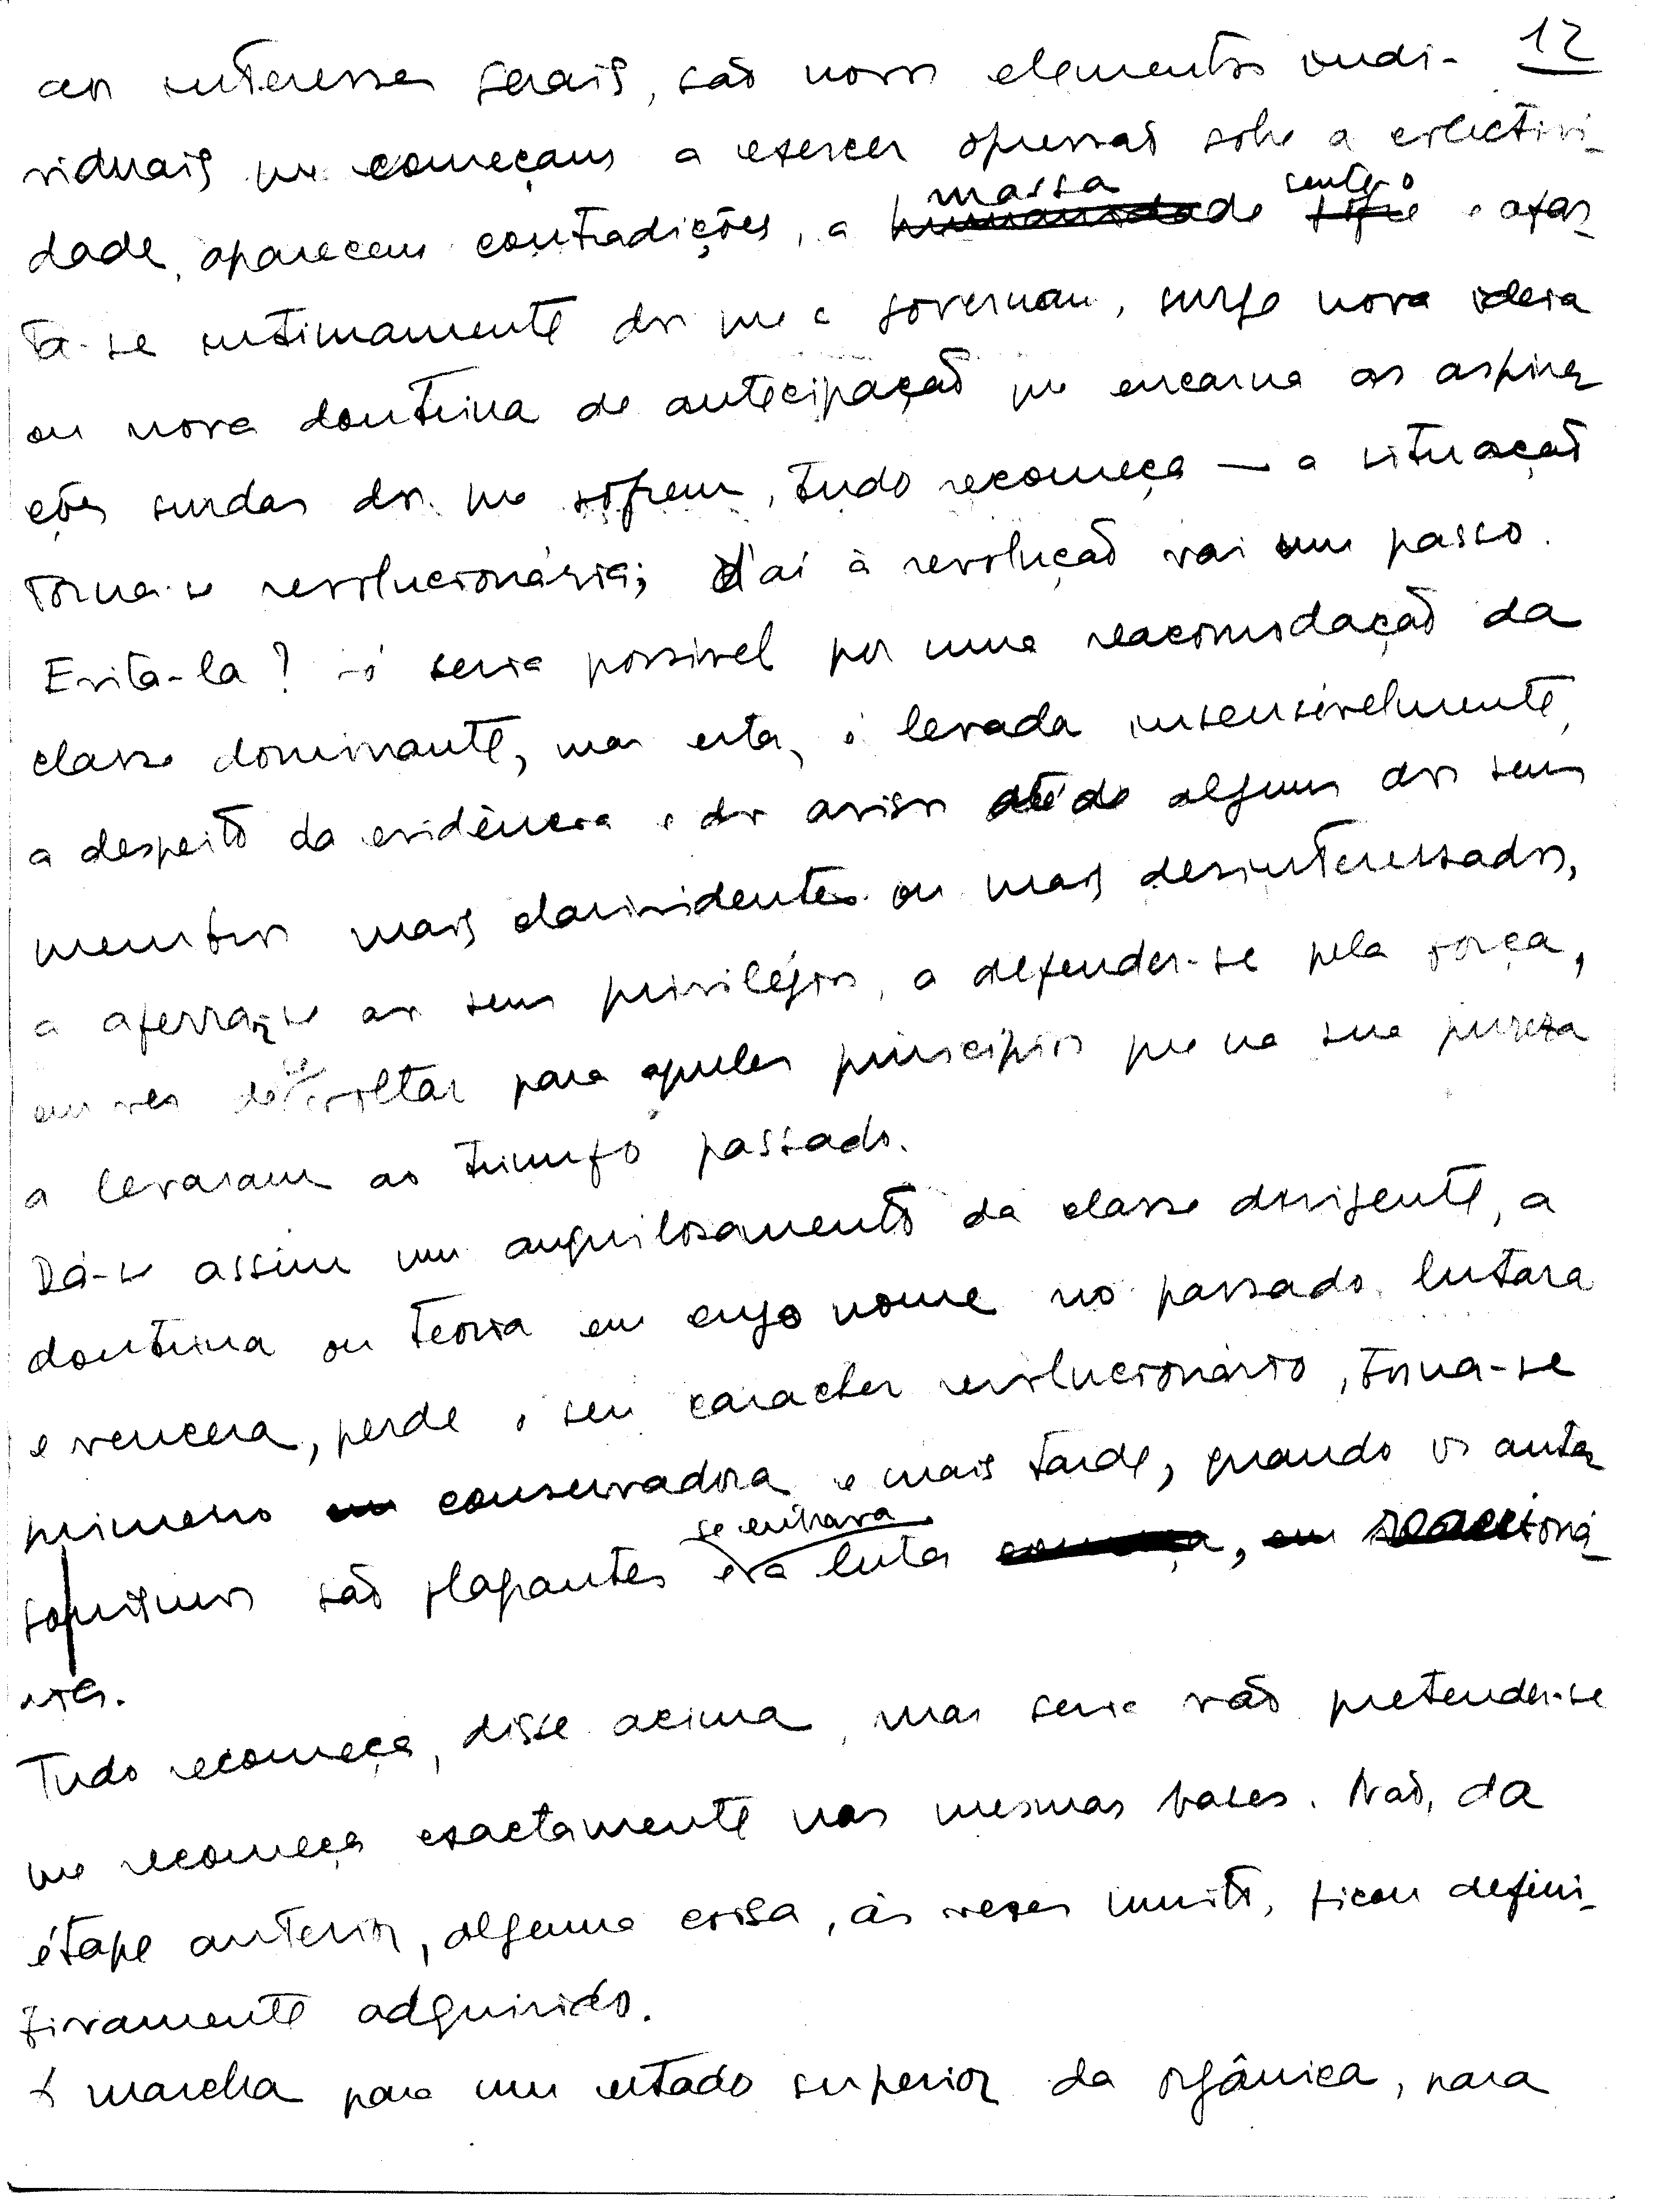 12
aos interesses gerais, são novos elementos indi-
viduais que começam a exercer opressão sobre a colectivi-
dade, aparecem contradições, a massa sente-o e afas-
ta-se intimamente dos que a governam, surge nova ideia
ou nova doutrina de antecipação que encarna as aspira-
ções surdas dos que sofrem, tudo recomeça — a situação
torna-se revolucionária; d'aí à revolução vai um passo.
Evitá-la? só seria possível por uma reacomodação da
classe dominante, mas esta, é levada insensivelmente,
a despeito da evidência e dos avisos até de alguns dos seus
membros mais clarividentes ou mais desinteressados,
a aferrar-se aos seus privilégios, a defender-se pela força,
em vez de se voltar para aqueles princípios que na sua pureza
a levaram ao triunfo passado.
Dá-se assim um anquilosamento da classe dirigente, a
doutrina ou teoria em cujo nome no passado lutara
e vencera, perde o seu caracter revolucionário, torna-se
primeiro conservadora e mais tarde, quando os anta-
gonismos são flagrantes e se entrava a luta, reaccioná-
ria.
Tudo recomeça, disse acima, mas seria vão pretender-se
que recomeça exactamente nas mesmas bases. Não, da
étape anterior, alguma coisa, às vezes muito, ficou defini-
tivamente adquirido.
A marcha para um estado superior da orgânica, para